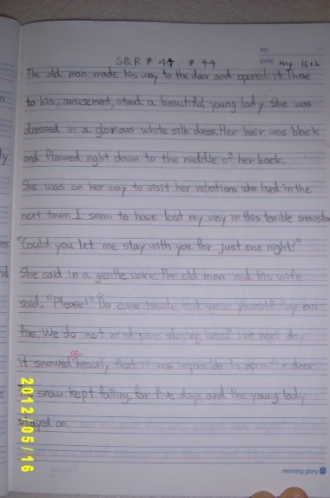 S&R # 44 # 44
NO.
DATE May. 16th
The old man made his way to the door and opened it. There
to his, amusement, stood a beautiful young lady. She was
dressed in a glorious white silk dress. Her hair was black
and flowed right down to the middle of her back.
She was on her way to visit her relations who lived in the
next town I seem to have lost my way in this terrible snowstorm
"Could you let me stay with you for just one night?"
She said in a gentle voice. The old man and his wife
said. "Please!" Do come inside and warm yourself by our
fire. We do not mind your sleeping here." The next day
it snowed heavily that it was impossible to open the door.
snow kept falling for five days, and the young lady
stayed on.
2012/05/16
morning glory